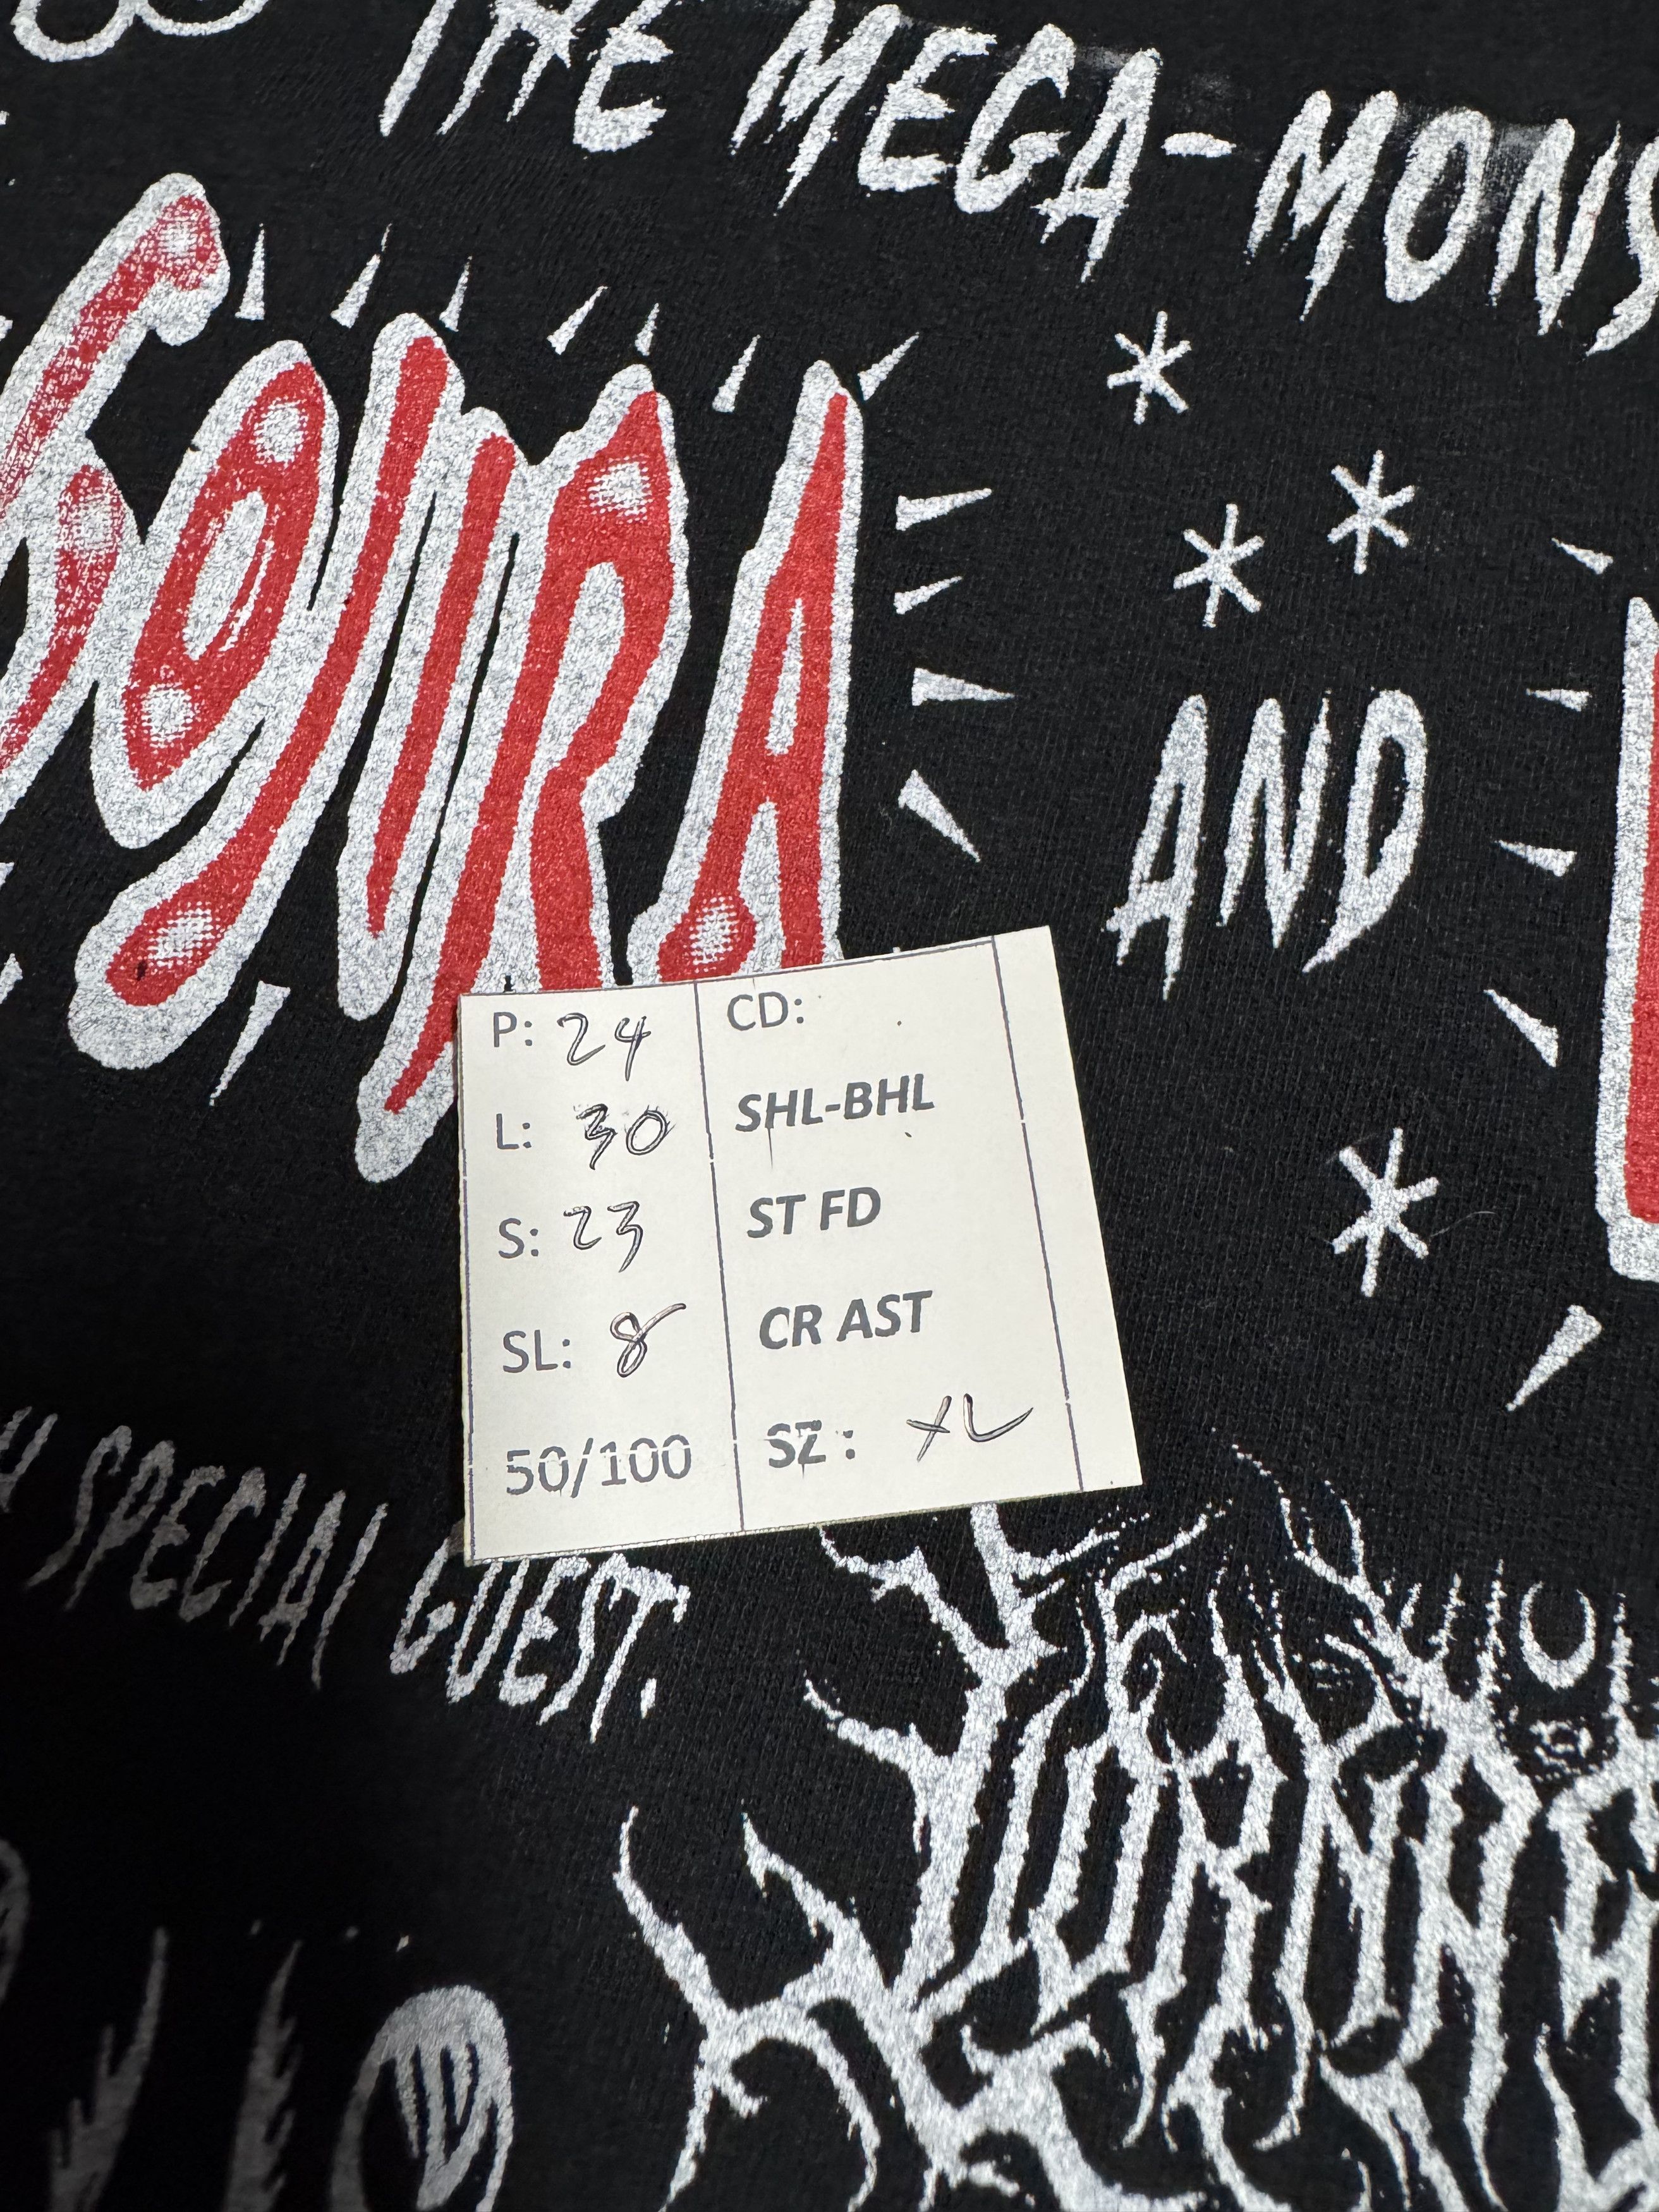 THE MEGA-MONS
GOJIRA
AND
P: 24 CD:
L: 30 SHL-BHL
S: 23 ST FD
SL: 8 CR AST
50/100 SZ: XL
H SPECIAL GUEST:
LORNA